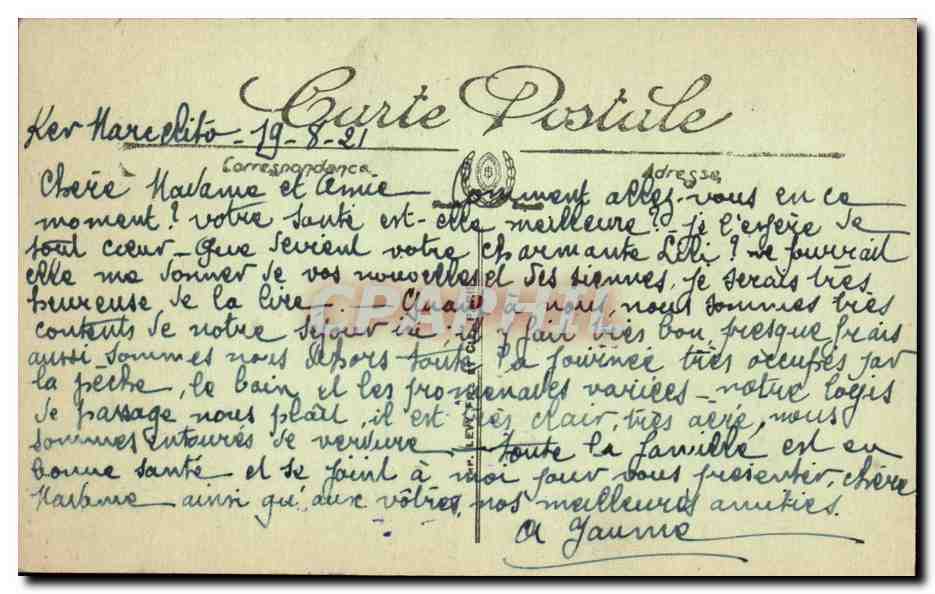 Carte Postale
Ker Marcelito - 19-8-21
Correspondance
Adresse
Chère Madame et Amie - Comment allez-vous en ce
moment ? votre santé est-elle meilleure ? je l'espère de
tout cœur - Que devient votre charmante Lili ? ne pourrait
elle me donner de vos nouvelles et des siennes, je serais très
heureuse de la lire - Quant à nous, nous sommes très
contents de notre séjour ici, il y fait très bon, presque frais
aussi sommes nous dehors toute la journée très occupés par
la pêche, le bain, et les promenades variées - notre logis
de passage nous plaît, il est très clair, très aéré, nous
sommes entourés de verdure - Toute la famille est en
bonne santé et se joint à moi pour vous présenter, chère
Madame ainsi qu'aux vôtres, nos meilleures amitiés.
A Jaume
CPARHAMA